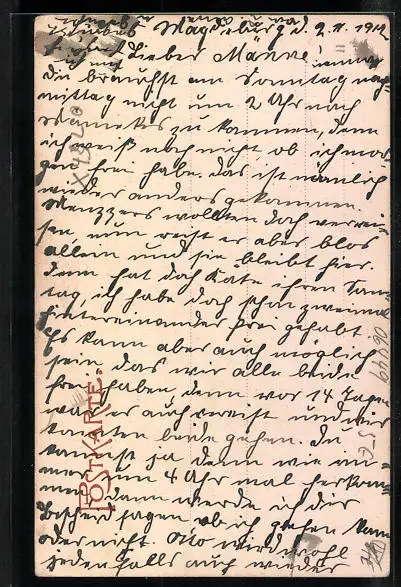 Magdeburg d. 2. II. 1912
Lieber Männe!
Du brauchst am Sonntag nach-
mittag nicht um 2 Uhr nach
zu kommen, denn
ich weiß noch nicht ob ich mor-
gen frei habe. das ist nämlich
wieder anders gekommen.
wollten doch verrei-
sen, nun reist er aber blos
allein und sie bleibt hier.
dann hat doch Käte ihren Sonn-
tag, ich habe doch schon zweimal
hintereinander frei gehabt.
Es kann aber auch möglich
sein das wir alle beide
frei haben, denn vor 14 Tagen
war er auch verreist und wir
konnten beide gehen. Du
kannst ja denn wie im-
mer um 4 Uhr mal herkom-
men, dann werde ich dir
Bescheid sagen ob ich gehen kann
oder nicht. Otto wird wohl
jedenfalls auch wieder
POSTKARTE.